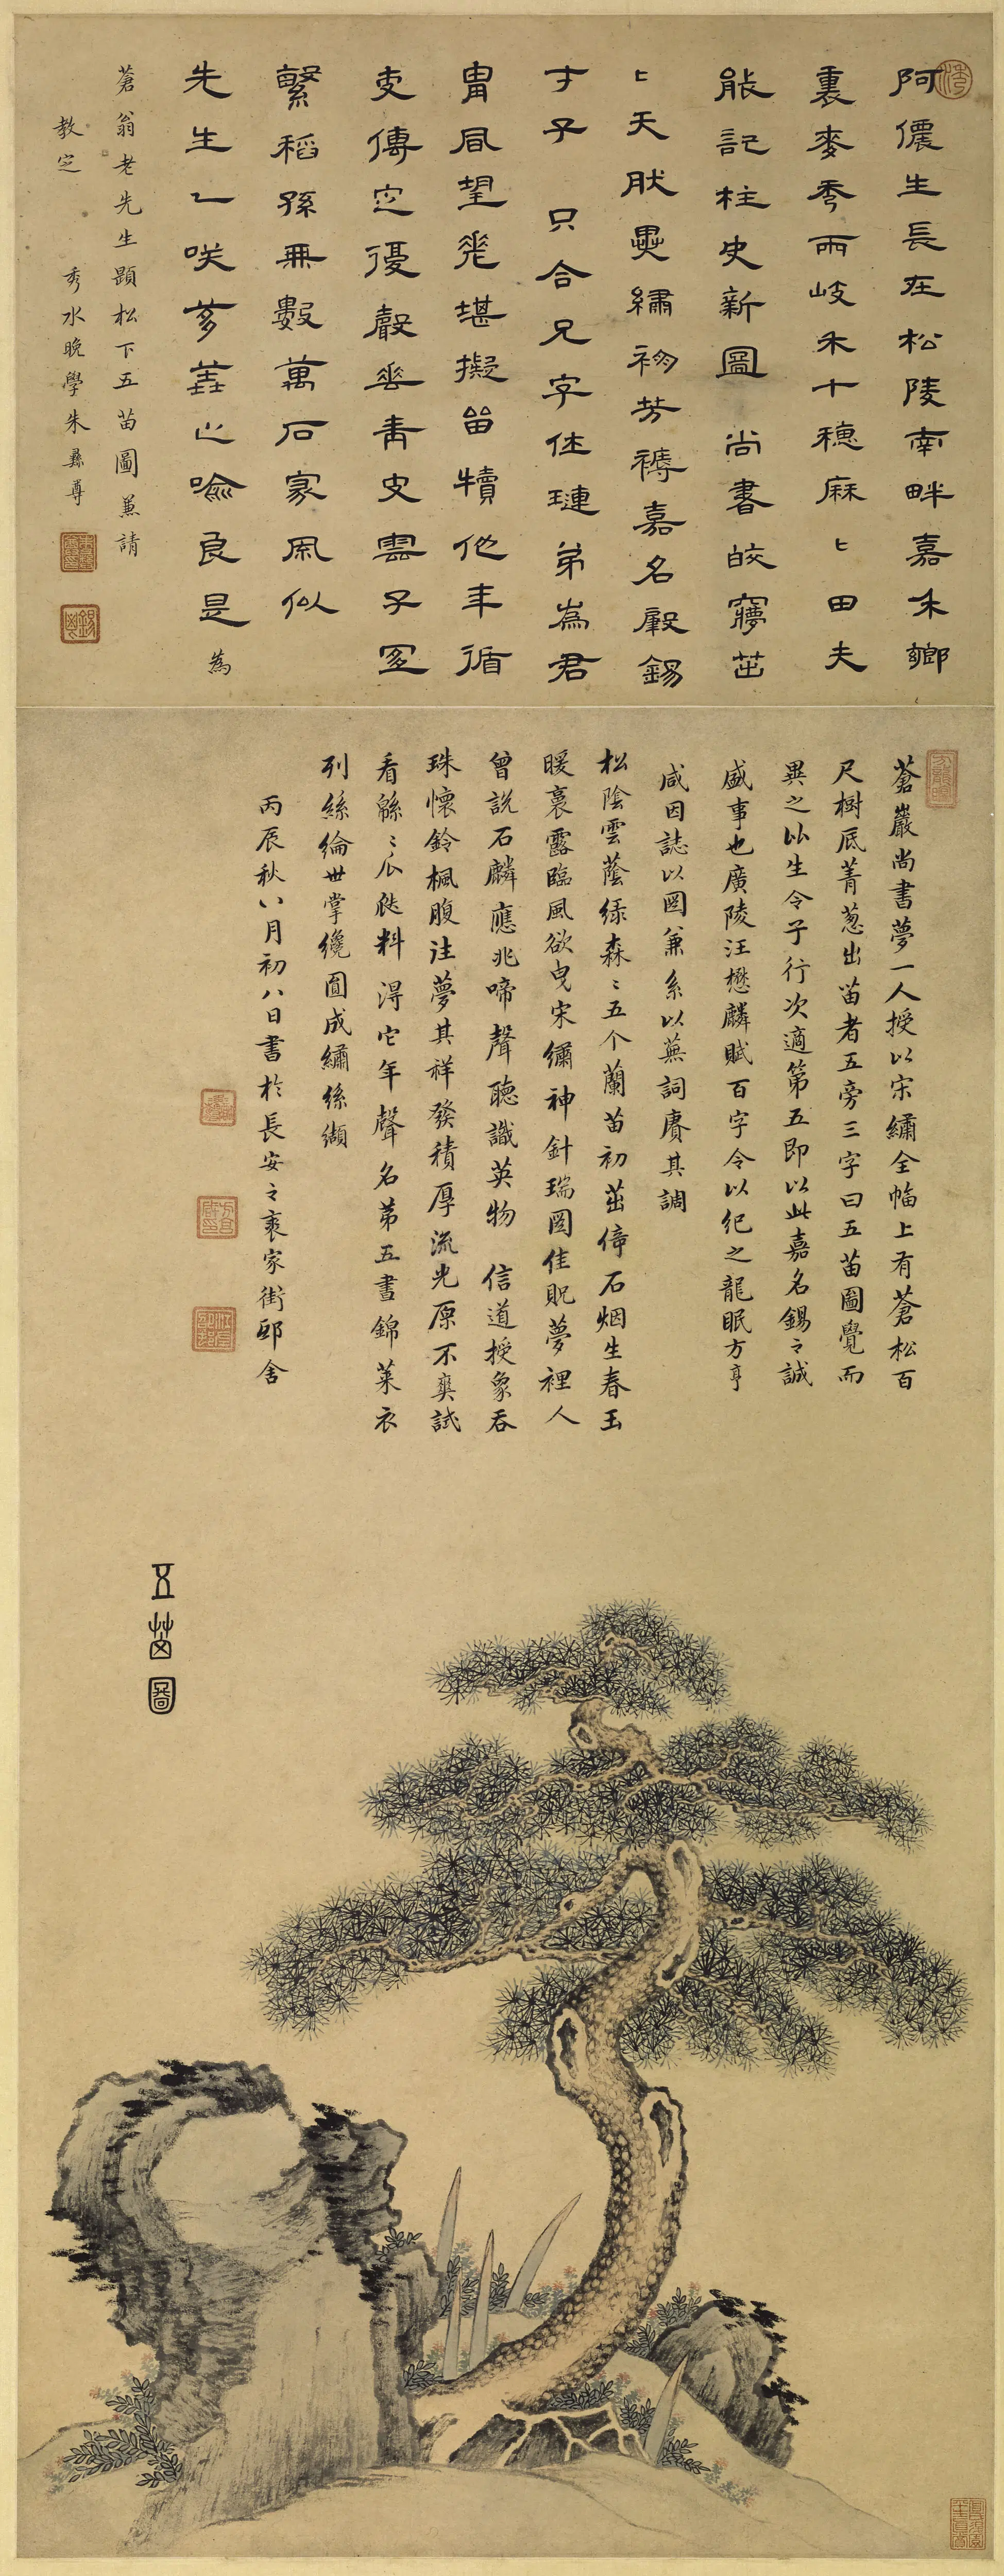 阿儂生長在松陵南畔嘉禾鄉
裏麥秀兩岐禾十穗麻〻田夫
能記柱史新圖尚書皎夢茁
〻天然異繡初芳褥嘉名殸錫
才子只合兄字住璉弟為君
胄眉望花堪擬苗犢他年循
吏傳定優聲華青史雲子罙
繄稻孫無數萬石家風似
先生一咲夢善止喻良是為
蒼翁老先生題松下五苗圖兼請
教定 秀水晚學朱彝尊
蒼巖尚書夢一人授以宋繡全幅上有蒼松百
尺樹底菁蔥出苗者五旁三字曰五苗圖覺而
異之比生令子行次適第五即以此嘉名錫之誠
盛事也廣陵汪懋麟賦百字令以紀之龍眠方亨
咸因誌以圖兼系以蕪詞賡其調
松陰雲蔭綠森〻五个蘭苗初茁偉石烟生春玉
暖裛露臨風欲曳宋繡神針瑞圖佳貺夢裡人
曾說石麟應兆啼聲聽識英物 信道授象吞
珠懷鈴楓腹注夢其祥發積厚流光原不爽試
看緜〻瓜瓞料得它年聲名第五書錦萊衣
列絲綸世掌纔圓成繡絲纈
丙辰秋八月初八日書於長安之裘家街邸舍
五苗圖